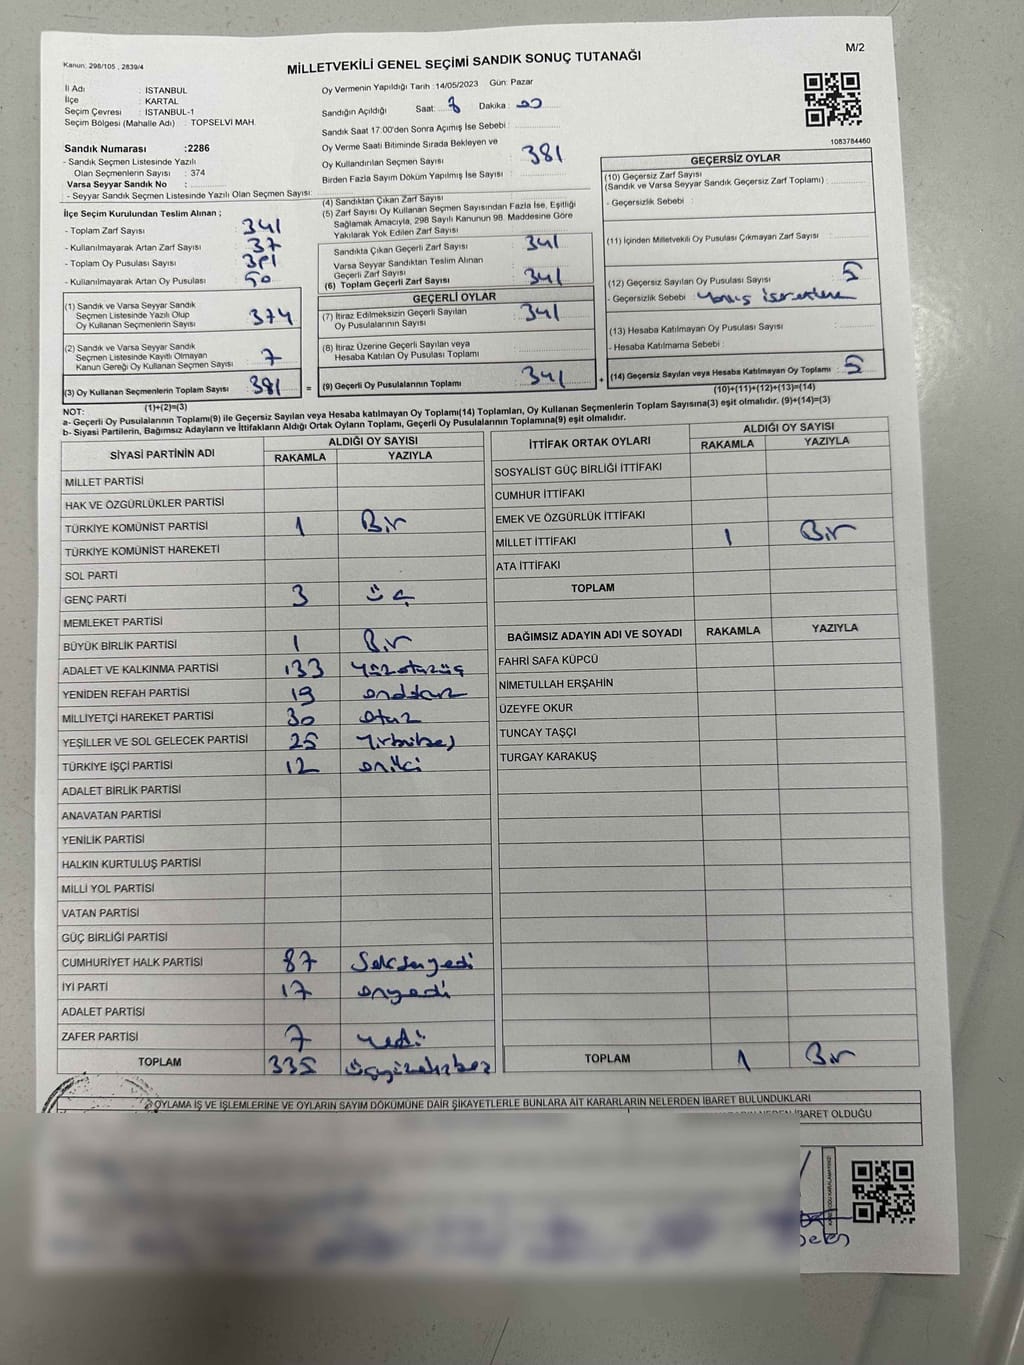 Kanun: 298/105 , 2839/4
MİLLETVEKİLİ GENEL SEÇİMİ SANDIK SONUÇ TUTANAĞI
M/2
İl Adı : İSTANBUL
İlçe : KARTAL
Seçim Çevresi : İSTANBUL-1
Seçim Bölgesi (Mahalle Adı) : TOPSELVİ MAH.
Sandık Numarası :2286
- Sandık Seçmen Listesinde Yazılı
Olan Seçmenlerin Sayısı : 374
Varsa Seyyar Sandık No :
- Seyyar Sandık Seçmen Listesinde Yazılı Olan Seçmen Sayısı:
Oy Vermenin Yapıldığı Tarih :14/05/2023 Gün: Pazar
Sandığın Açıldığı Saat: 8 Dakika: 00
Sandık Saat 17.00'den Sonra Açımış İse Sebebi :
Oy Verme Saati Bitiminde Sırada Bekleyen ve
Oy Kullandırılan Seçmen Sayısı : 381
Birden Fazla Sayım Döküm Yapılmış İse Sayısı :
1083784460
İlçe Seçim Kurulundan Teslim Alınan ;
- Toplam Zarf Sayısı : 341
- Kullanılmayarak Artan Zarf Sayısı : 37
- Toplam Oy Pusulası Sayısı : 391
- Kullanılmayarak Artan Oy Pusulası : 50
(1) Sandık ve Varsa Seyyar Sandık
Seçmen Listesinde Yazılı Olup
Oy Kullanan Seçmenlerin Sayısı : 374
(2) Sandık ve Varsa Seyyar Sandık
Seçmen Listesinde Kayıtlı Olmayan
Kanun Gereği Oy Kullanan Seçmen Sayısı : 7
(3) Oy Kullanan Seçmenlerin Toplam Sayısı : 381
(1)+(2)=(3)
(4) Sandıktan Çıkan Zarf Sayısı
(5) Zarf Sayısı Oy Kullanan Seçmen Sayısından Fazla İse, Eşitliği
Sağlamak Amacıyla, 298 Sayılı Kanunun 98. Maddesine Göre
Yakılarak Yok Edilen Zarf Sayısı :
Sandıkta Çıkan Geçerli Zarf Sayısı : 341
Varsa Seyyar Sandıktan Teslim Alınan
Geçerli Zarf Sayısı :
(6) Toplam Geçerli Zarf Sayısı : 341
GEÇERLİ OYLAR
(7) İtiraz Edilmeksizin Geçerli Sayılan
Oy Pusulalarının Sayısı : 341
(8) İtiraz Üzerine Geçerli Sayılan veya
Hesaba Katılan Oy Pusulası Toplamı :
= (9) Geçerli Oy Pusulalarının Toplamı : 341
GEÇERSİZ OYLAR
(10) Geçersiz Zarf Sayısı
(Sandık ve Varsa Seyyar Sandık Geçersiz Zarf Toplamı) :
- Geçersizlik Sebebi :
(11) İçinden Milletvekili Oy Pusulası Çıkmayan Zarf Sayısı :
(12) Geçersiz Sayılan Oy Pusulası Sayısı : 5
- Geçersizlik Sebebi :
(13) Hesaba Katılmayan Oy Pusulası Sayısı :
- Hesaba Katılmama Sebebi :
+ (14) Geçersiz Sayılan veya Hesaba Katılmayan Oy Toplamı : 5
(10)+(11)+(12)+(13)=(14)
NOT:
a- Geçerli Oy Pusulalarının Toplamı(9) ile Geçersiz Sayılan veya Hesaba katılmayan Oy Toplamı(14) Toplamları, Oy Kullanan Seçmenlerin Toplam Sayısına(3) eşit olmalıdır. (9)+(14)=(3)
b- Siyasi Partilerin, Bağımsız Adayların ve İttifakların Aldığı Ortak Oyların Toplamı, Geçerli Oy Pusulalarının Toplamına(9) eşit olmalıdır.
SİYASİ PARTİNİN ADI ALDIĞI OY SAYISI
RAKAMLA YAZIYLA
MİLLET PARTİSİ
HAK VE ÖZGÜRLÜKLER PARTİSİ
TÜRKİYE KOMÜNİST PARTİSİ 1 Bir
TÜRKİYE KOMÜNİST HAREKETİ
SOL PARTİ
GENÇ PARTİ 3 üç
MEMLEKET PARTİSİ
BÜYÜK BİRLİK PARTİSİ 1 Bir
ADALET VE KALKINMA PARTİSİ 133 yüzotuzüç
YENİDEN REFAH PARTİSİ 19 ondokuz
MİLLİYETÇİ HAREKET PARTİSİ 30 otuz
YEŞİLLER VE SOL GELECEK PARTİSİ 25 Yirmibeş
TÜRKİYE İŞÇİ PARTİSİ 12 oniki
ADALET BİRLİK PARTİSİ
ANAVATAN PARTİSİ
YENİLİK PARTİSİ
HALKIN KURTULUŞ PARTİSİ
MİLLİ YOL PARTİSİ
VATAN PARTİSİ
GÜÇ BİRLİĞİ PARTİSİ
CUMHURİYET HALK PARTİSİ 87 Seksenyedi
İYİ PARTİ 17 onyedi
ADALET PARTİSİ
ZAFER PARTİSİ 7 yedi
TOPLAM 335
İTTİFAK ORTAK OYLARI ALDIĞI OY SAYISI
RAKAMLA YAZIYLA
SOSYALİST GÜÇ BİRLİĞİ İTTİFAKI
CUMHUR İTTİFAKI
EMEK VE ÖZGÜRLÜK İTTİFAKI
MİLLET İTTİFAKI 1 Bir
ATA İTTİFAKI
TOPLAM
BAĞIMSIZ ADAYIN ADI VE SOYADI RAKAMLA YAZIYLA
FAHRİ SAFA KÜPCÜ
NİMETULLAH ERŞAHİN
ÜZEYFE OKUR
TUNCAY TAŞÇI
TURGAY KARAKUŞ
TOPLAM 1 Bir
OYLAMA İŞ VE İŞLEMLERİNE VE OYLARIN SAYIM DÖKÜMÜNE DAİR ŞİKAYETLERLE BUNLARA AİT KARARLARIN NELERDEN İBARET BULUNDUKLARI
İBARET OLDUĞU